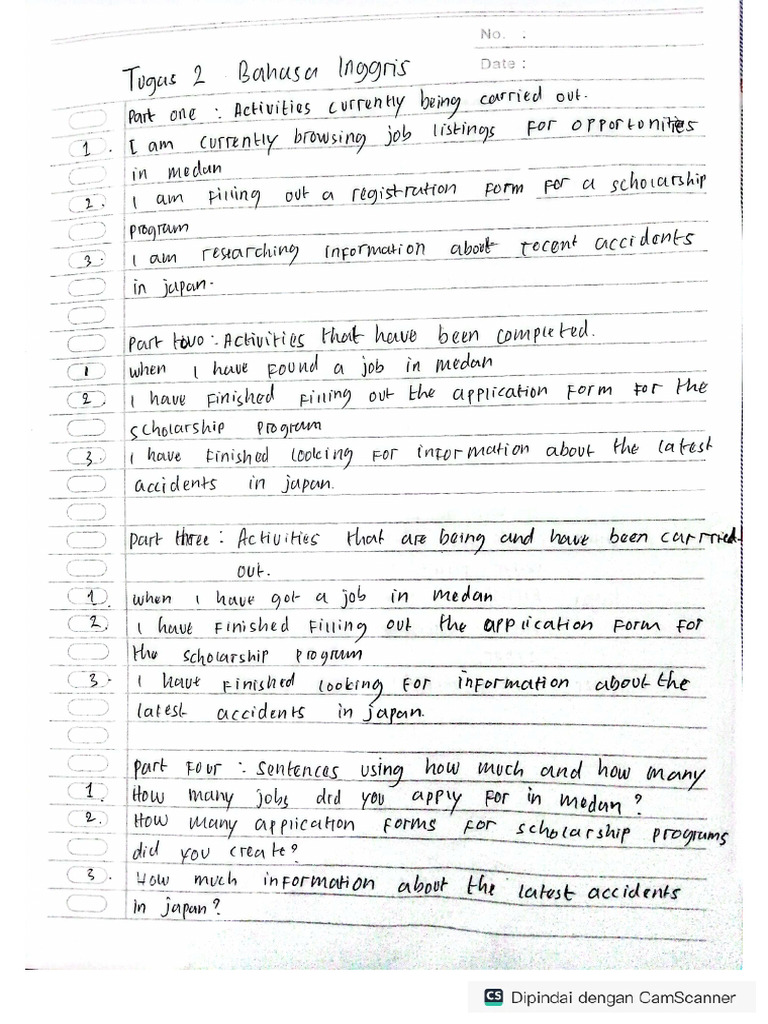 No. :
Date :
Tugas 2 Bahasa Inggris
Part one : Activities currently being carried out.
1. I am currently browsing job listings for opportunities
in medan
2. I am filling out a registration form for a scholarship
program
3. I am researching information about recent accidents
in japan.
Part two : Activities that have been completed.
1 when I have found a job in medan
2. I have finished filling out the application form for the
scholarship program
3. I have finished looking for information about the latest
accidents in japan.
Part three : Activities that are being and have been carried
out.
1. when I have got a job in medan
2. I have finished filling out the application form for
the scholarship program
3. I have finished looking for information about the
latest accidents in japan.
Part four : Sentences using how much and how many
1. How many jobs did you apply for in medan ?
2. How many application forms for scholarship programs
did you create?
3. How much information about the latest accidents
in japan ?
CS Dipindai dengan CamScanner